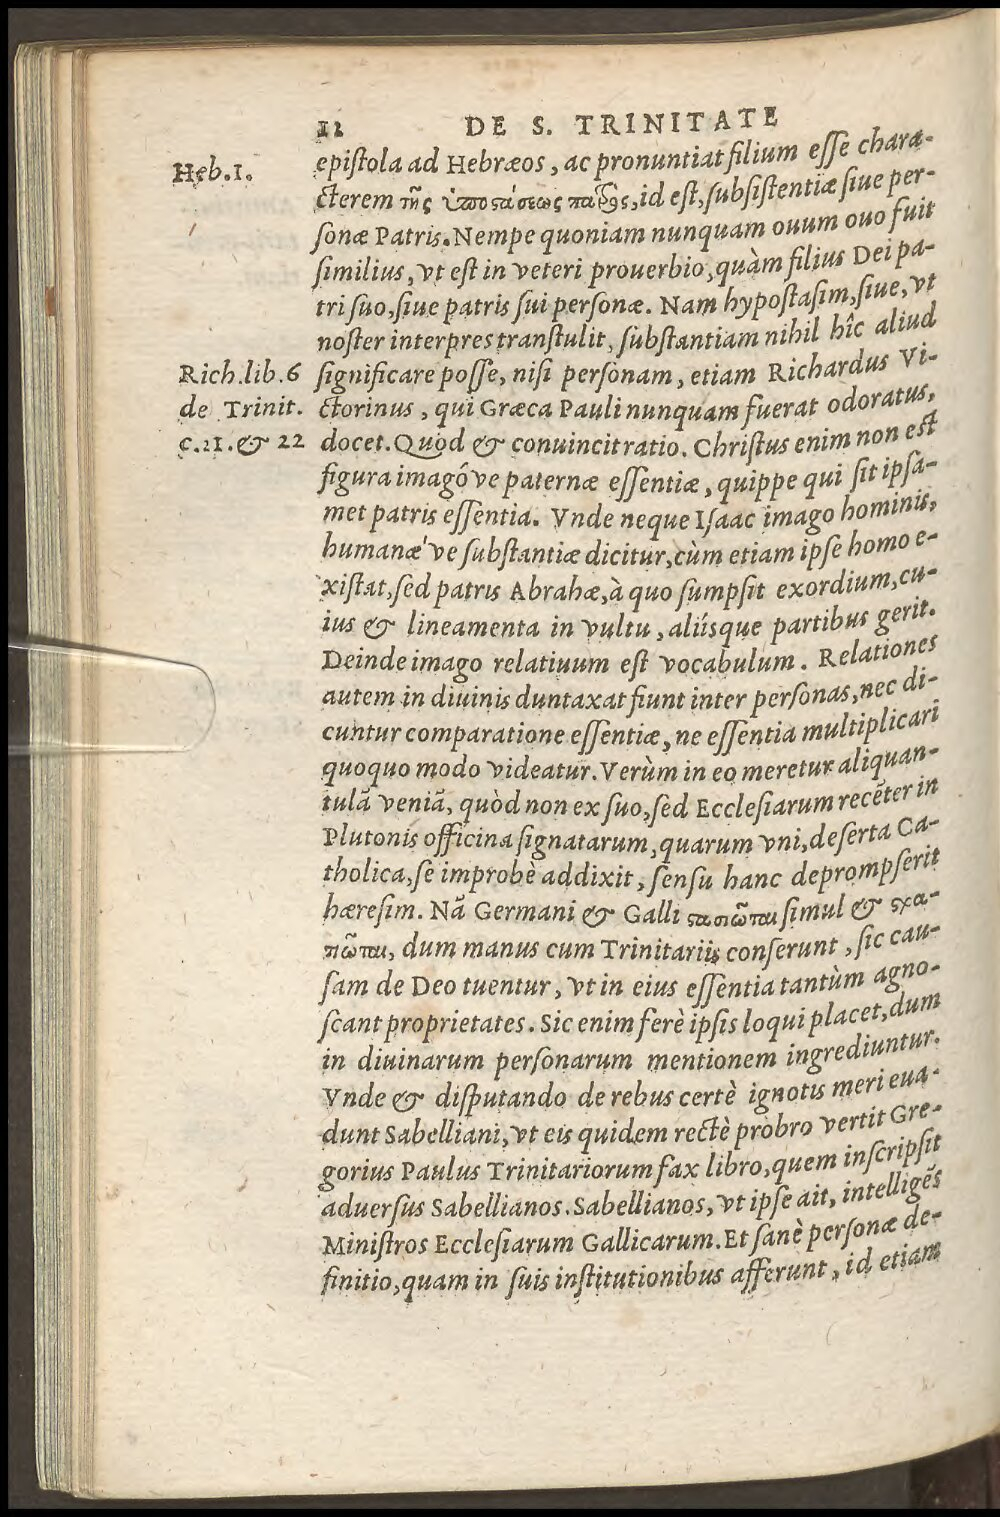 12 DE S. TRINITATE
Heb.1.
epistola ad Hebræos, ac pronuntiat filium esse chara-
cterem τῆς ὑποστάσεως πατρὸς, id est, subsistentiæ siue per-
sonæ Patris. Nempe quoniam nunquam ouum ouo fuit
similius, vt est in veteri prouerbio, quàm filius Dei pa-
tri suo, siue patris sui personæ. Nam hypostasim, siue, vt
noster interpres transtulit, substantiam nihil hîc aliud
Rich.lib.6
de Trinit.
c.21.& 22
significare posse, nisi personam, etiam Richardus Vi-
ctorinus, qui Græca Pauli nunquam fuerat odoratus,
docet. Quod & conuincit ratio. Christus enim non est
figura imagóve paternæ essentiæ, quippe qui sit ipsa-
met patris essentia. Vnde neque Isaac imago hominis,
humanæ've substantiæ dicitur, cùm etiam ipse homo e-
xistat, sed patris Abrahæ, à quo sumpsit exordium, cu-
ius & lineamenta in vultu, aliísque partibus gerit.
Deinde imago relatiuum est vocabulum. Relationes
autem in diuinis duntaxat fiunt inter personas, nec di-
cuntur comparatione essentiæ, ne essentia multiplicari
quoquo modo videatur. Verùm in eo meretur aliquan-
tulã veniã, quòd non ex suo, sed Ecclesiarum recẽter in
Plutonis officina signatarum, quarum vni, deserta Ca-
tholica, se improbè addixit, sensu hanc deprompserit
hæresim. Nã Germani & Galli simul &
dum manus cum Trinitariis conserunt, sic cau-
sam de Deo tuentur, vt in eius essentia tantùm agno-
scant proprietates. Sic enim ferè ipsis loqui placet, dum
in diuinarum personarum mentionem ingrediuntur.
Vnde & disputando de rebus certè ignotis meri eua-
dunt Sabelliani, vt eis quidem rectè probro vertit Gre-
gorius Paulus Trinitariorum fax libro, quem inscripsit
aduersus Sabellianos. Sabellianos, vt ipse ait, intelligẽs
Ministros Ecclesiarum Gallicarum. Et sanè personæ de-
finitio, quam in suis institutionibus afferunt, id etiam